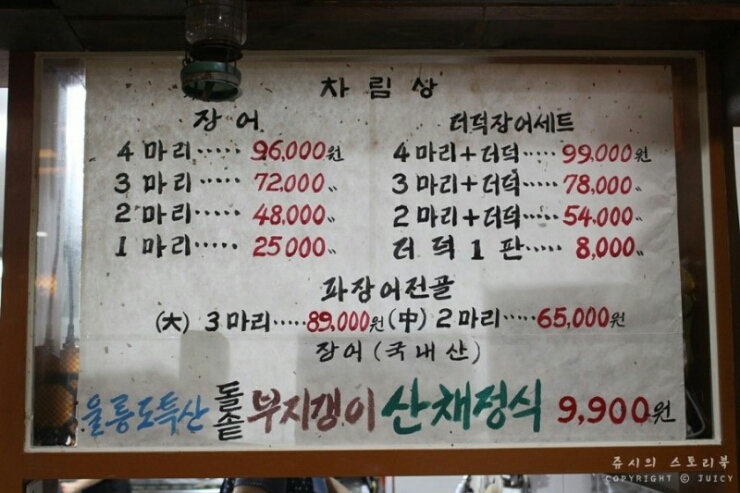 차림상
장어
4마리····· 96,000원
3마리····· 72,000〃
2마리····· 48,000〃
1마리····· 25,000〃
더덕장어세트
4마리+더덕····· 99,000원
3마리+더덕····· 78,000〃
2마리+더덕····· 54,000〃
더덕1판····· 8,000〃
파장어전골
(大) 3마리·····89,000원 (中) 2마리·····65,000원
장어(국내산)
울릉도특산 돌솥 부지갱이 산채정식 9,900원
쥬시의 스토리북
COPYRIGHT © JUICY